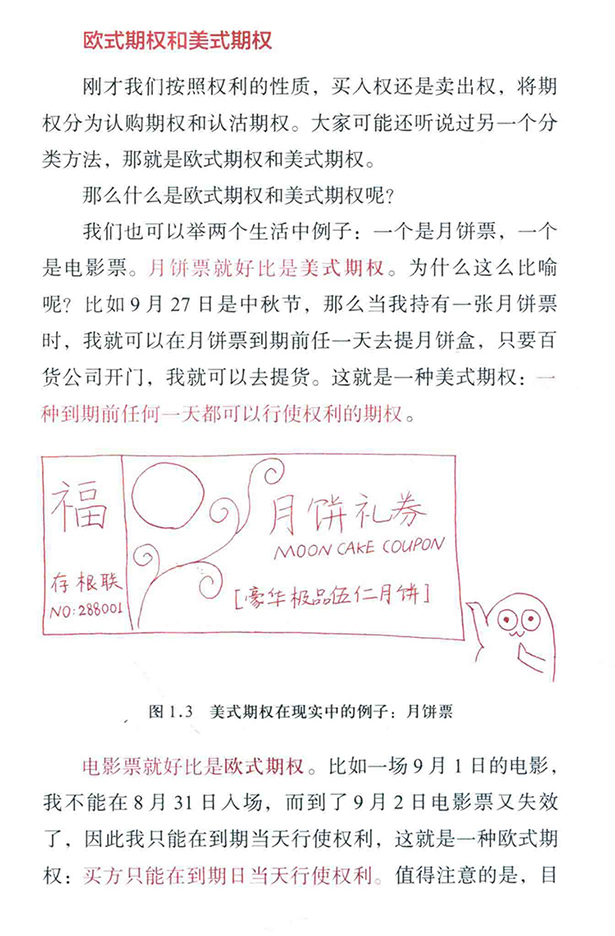 欧式期权和美式期权
刚才我们按照权利的性质，买入权还是卖出权，将期
权分为认购期权和认沽期权。大家可能还听说过另一个分
类方法，那就是欧式期权和美式期权。
那么什么是欧式期权和美式期权呢？
我们也可以举两个生活中例子：一个是月饼票，一个
是电影票。月饼票就好比是美式期权。为什么这么比喻
呢？比如9月27日是中秋节，那么当我持有一张月饼票
时，我就可以在月饼票到期前任一天去提月饼盒，只要百
货公司开门，我就可以去提货。这就是一种美式期权：一
种到期前任何一天都可以行使权利的期权。
福
存根联
NO:288001
月饼礼券
MOON CAKE COUPON
[豪华极品伍仁月饼]
图1.3 美式期权在现实中的例子：月饼票
电影票就好比是欧式期权。比如一场9月1日的电影，
我不能在8月31日入场，而到了9月2日电影票又失效
了，因此我只能在到期当天行使权利，这就是一种欧式期
权：买方只能在到期日当天行使权利。值得注意的是，目